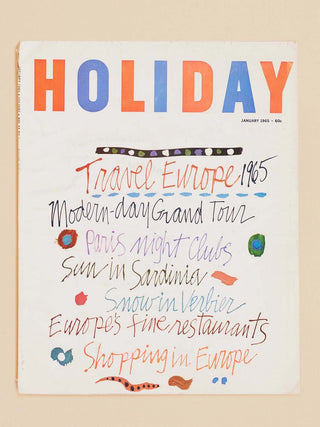 HOLIDAY
JANUARY 1965 · 60c
Travel Europe 1965
Modern-day Grand Tour
Paris night Clubs
Sun in Sardinia
Snow in Verbier
Europe's fine restaurants
Shopping in Europe